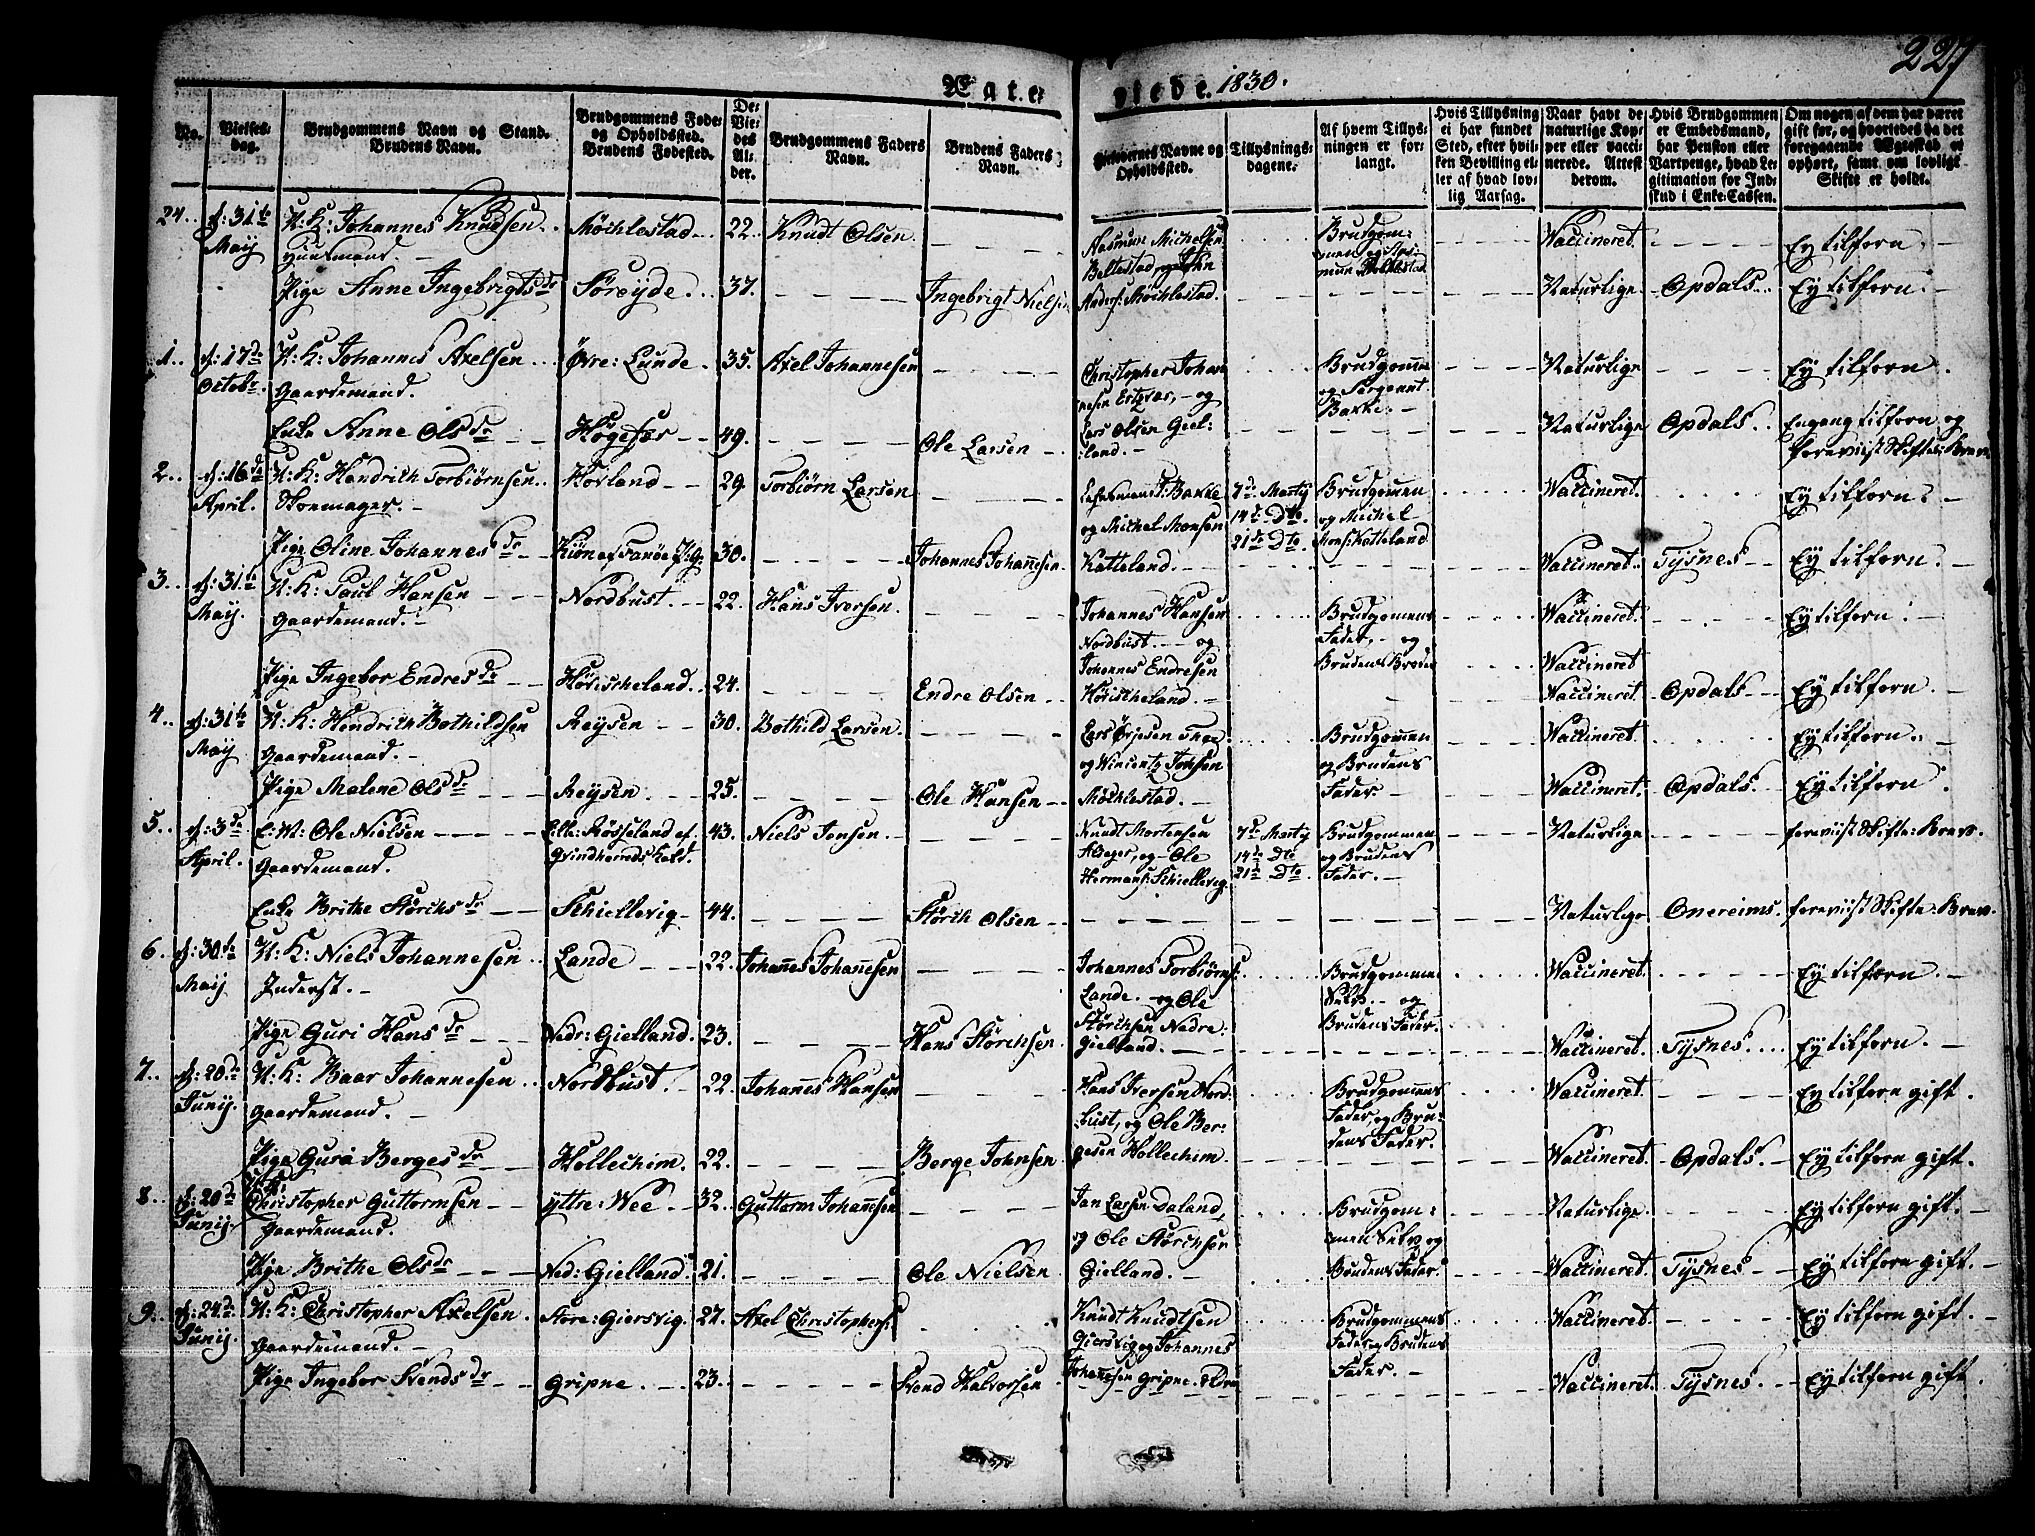 227
Ægte viede. 1830.
No. | Vielses-dag. | Brudgommens Navn og Stand. Brudens Navn. | Brudgommens Føde- og Opholdssted. Brudens Fødested. | De Viedes Alder. | Brudgommens Faders Navn. | Brudens Faders Navn. | Forlovernes Navne og Opholdssted. | Tillysnings-dagene. | Af hvem Tillysningen er forlangt. | Hvis Tillysning ei har fundet Sted, efter hvilken Bevilling eller af hvad lovlig Aarsag. | Naar havt de naturlige Kopper eller vaccinerede. Attest derom. | Hvis Brudgommen er Embedsmand, har Pension eller Vartpenge, hvad Legitimation for Indskud i Enke-Cassen. | Om nogen af dem har været gift før, og hvorledes da det foregaaende Ægteskab er ophørt, samt om lovligt Skifte er holdt.
24. | d: 31te Maij | U: K: Johannes Knudsen. Huusmand. | Möchlestad | 22. | Knudt Olsen | | Rasmus Michelsen Beltestad, og John Anders: Möchlestad. | | Brudgommen og | | Vaccineret. | | Ey tilforn.
Pige Anne Ingebrigts dr | Söreyde | 37. | | Ingebrigt Nielsen | | | | | Naturlige | Opdals | Ey tilforn.
1. | d: 17de Octobr. | U: K: Johannes Axelsen Gaardemand. | Övre: Lunde | 35. | Axel Johannesen | | Christopher Johannesen og Lars Olsen Gielland. | | Brudgommen og Sergeant Bakke. | | Naturlige | | Ey tilforn.
Enke Anne Ols dr | Högefær | 49. | | Ole Larsen | | | | | Naturlige | Opdals | Engang tilforn og foreviist Skifte: Brev
2. | d: 16de April. | U: K: Hendrich Torbiörnsen Skoemager. | Hovland | 29. | Torbiörn Larsen | | T: Bakke og Michel Monsen Katteland. | 7de Martij 14de Dto 21de Dto | Brudgommen og Michel Mons: Katteland | | Vaccineret. | | Ey tilforn.
Pige Oline Johannes dr | | 30. | | Johannes Johannesen. | | | | | Vaccineret. | Tysnes | Ey tilforn.
3. | d: 31te Maij. | U: K: Paul Hansen Gaardemand. | Nordbust. | 22. | Hans Iversen. | | Johannes Hansen Nordbust. og Johannes Endresen Höviskeland. | | Brudgommens Fader, og Brudens Broder | | Vaccineret. | | Ey tilforn.
Vaccineret
Pige Ingebor Endres dr | Höviskeland. | 24. | | Endre Olsen | | | | | Vaccineret. | Opdals | Ey tilforn.
4. | d: 31te Maij | U: K: Hendrich Bothildsen Gaardemand. | Reysen | 30. | Bothild Larsen. | | Lars Örjesen Thoe og Vincentz Johnsen Möchlestad. | | Brudgommen og Brudens Fader. | | Vaccineret. | | Ey tilforn.
Pige Malene Ols dr | Reysen | 25. | | Ole Hansen | | | | | Vaccineret. | Opdals. | Ey tilforn.
5. | d: 3de April. | E: M: Ole Nielsen Gaardemand. | Lille: Rösseland af Qvindherreds Præst. | 43. | Niels Jensen | | Knudt Mortensen og Ole Hermans: Schiellevig. | 7de Martij 14de Dto 21de Dto | Brudgommen og Brudens Fader. | | Naturlige | | foreviist Skifte: Brev.
Enke Brithe Störchs dr | Schiellevig | 44. | | Störch Olsen | | | | | Naturlige | Onereims. | foreviist Skifte: Brev.
6. | d: 30te Maij | U: K: Niels Johannesen Inderst. | Lande | 22. | Johannes Johannesen | | Johannes Torbiörns: Lande. og Ole Störchsen Nedre: Gielland. | | Brudgommen Selv. og Brudens Fader. | | Vaccineret. | | Ey tilforn.
Pige Guri Hans dr | Nedr: Gielland. | 23. | | Hans Störchsen | | | | | Vaccineret. | Tysnes. | Ey tilforn.
7. | d: 20de Junij. | U: K: Baar Johannesen Gaardemand. | Nordbust. | 22. | Johannes Hansen | | Hans Iversen Nordbust, og Ole Bergesen Hollechim | | Brudgommens Fader, og Brudens Fader. | | Vaccineret. | | Ey tilforn gift.
Pige Guri Berges dr | Hollechim. | 22. | | Berge Johnsen | | | | | Vaccineret. | Opdals. | Ey tilforn gift.
8. | d: 20de Junij. | U: K: Christopher Guttormsen Gaardemand. | Yttre: Wee | 32. | Guttorm Johannesen | | Jan Larsen Daland, og Ole Störchsen Gielland. | | Brudgommen Selv og Brudens Fader. | | Naturlige. | | Ey tilforn gift.
Pige Brithe Ols dr | Ned: Gielland. | 21. | | Ole Nielsen | | | | | Vaccineret. | Tysnes | Ey tilforn gift.
9. | d: 24de Junij. | U: K: Christopher Axelsen Gaardemand. | Store: Giersvig. | 27. | Axel Christophers: | | Knudt Knudtsen Giersvig og Johannes Johannesen Gripne. | | Brudgommens Fader og Brudens Fader. | | Vaccineret. | | Ey tilforn gift.
Pige Ingebor Svends dr | Gripne. | 23. | | Svend Halvorsen | | | | | Vaccineret. | Tysnes. | Ey tilforn gift.